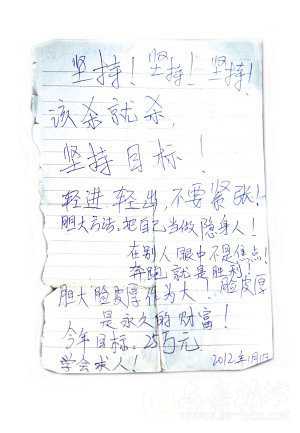 坚持！坚持！坚持！
该杀就杀，
坚持目标！
轻进轻出，不要紧张！
胆大方法：把自己当做隐身人！
在别人眼中不是焦点！
奔跑就是胜利！
胆大脸皮厚作为大！脸皮厚
是永久的财富！
今年目标：25万元
学会求人！
2012年1月1日